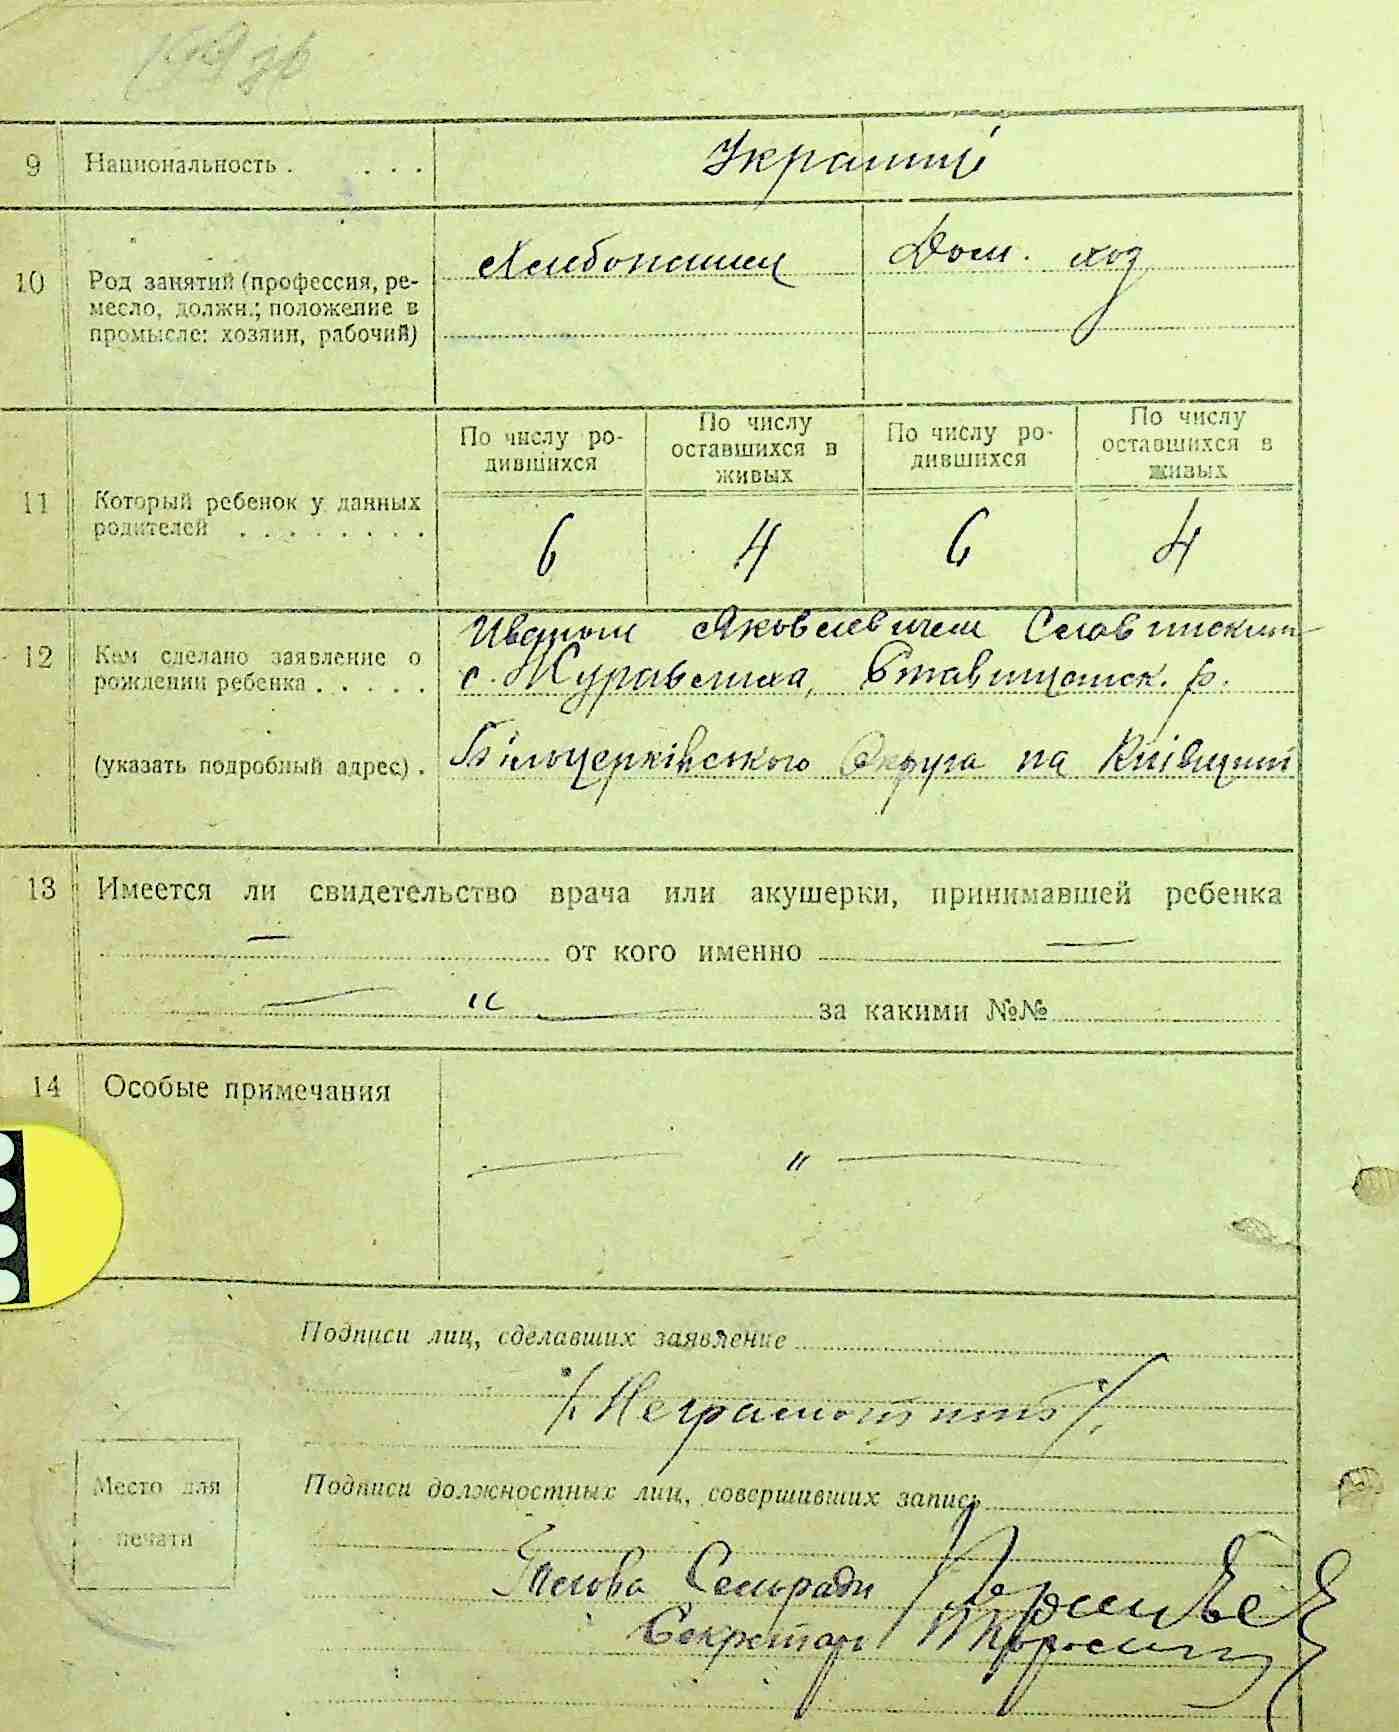 9 Национальность . . . . Украинці
10 Род занятий (профессия, ре-
месло, должн.; положение в
промысле: хозяин, рабочий)
Хлебопашец Дом. хоз
По числу ро-
дившихся
По числу
оставшихся в
живых
По числу ро-
дившихся
По числу
оставшихся в
живых
11 Который ребенок у данных
родителей . . . . . . . .
6 4 6 4
12 Кем сделано заявление о
рождении ребенка . . . . .
(указать подробный адрес) .
Иваном Яковлевичем Славинским
с. Журавлиха, Ставищанск. р.
Білоцерківського Округа на Київщині
13 Имеется ли свидетельство врача или акушерки, принимавшей ребенка
— от кого именно —
— " — за какими №№
14 Особые примечания
— " —
Подписи лиц, сделавших заявление
/. Неграмотний /.
Место для
печати
Подписи должностных лиц, совершивших запись
Голова Сельради
Секретарь